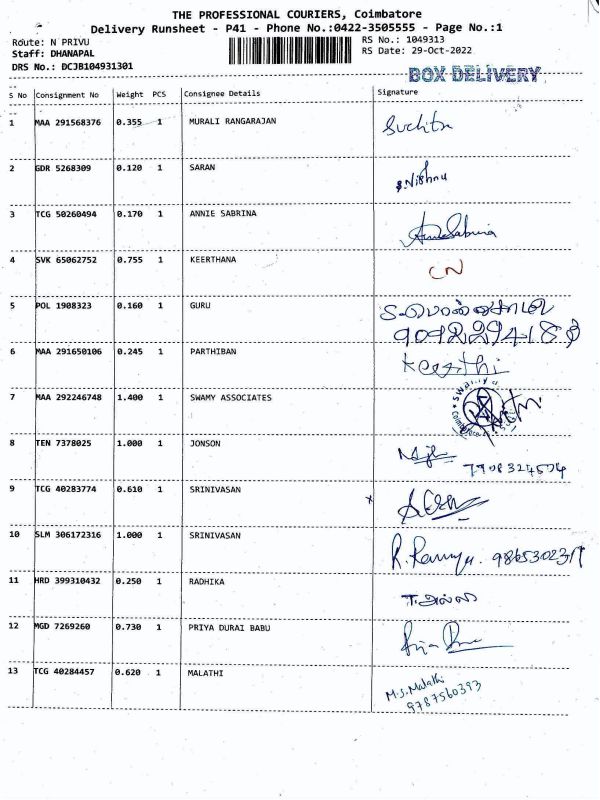 THE PROFESSIONAL COURIERS, Coimbatore
Delivery Runsheet - P41 - Phone No.:0422-3505555 - Page No.:1
Route: N PRIVU RS No.: 1049313
Staff: DHANAPAL RS Date: 29-Oct-2022
DRS No.: DCJB104931301
BOX DELIVERY
S No Consignment No Weight PCS Consignee Details Signature
1 MAA 291568376 0.355 1 MURALI RANGARAJAN Suchitra
2 GDR 5268309 0.120 1 SARAN S.Vishnu
3 TCG 50260494 0.170 1 ANNIE SABRINA AnnieSabrina
4 SVK 65062752 0.755 1 KEERTHANA CN
5 POL 1908323 0.160 1 GURU
6 MAA 291650106 0.245 1 PARTHIBAN Keerthi
7 MAA 292246748 1.400 1 SWAMY ASSOCIATES
8 TEN 7378025 1.000 1 JONSON
9 TCG 40283774 0.610 1 SRINIVASAN
10 SLM 306172316 1.000 1 SRINIVASAN R. Ramya.
11 HRD 399310432 0.250 1 RADHIKA
12 MGD 7269260 0.730 1 PRIYA DURAI BABU
13 TCG 40284457 0.620 1 MALATHI M.S.Malathi
9787560393